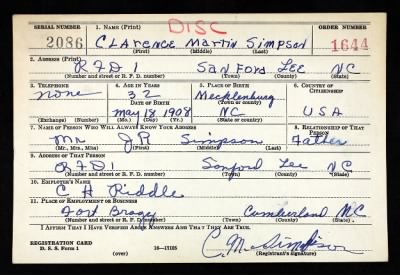 SERIAL NUMBER 1. NAME (Print) ORDER NUMBER
DISC
2086 CLarence Martin Simpson 1644
(First) (Middle) (Last)
2. ADDRESS (Print)
RFD1 Sanford Lee NC
(Number and street or R. F. D. number) (Town) (County) (State)
3. TELEPHONE 4. AGE IN YEARS 5. PLACE OF BIRTH 6. COUNTRY OF CITIZENSHIP
None 32 Mecklenburg
DATE OF BIRTH (Town or county)
May 18 1908 NC USA
(Exchange) (Number) (Mo.) (Day) (Yr.) (State or country)
7. NAME OF PERSON WHO WILL ALWAYS KNOW YOUR ADDRESS 8. RELATIONSHIP OF THAT PERSON
Mr Simpson Father
(Mr., Mrs., Miss) (First) (Middle) (Last)
9. ADDRESS OF THAT PERSON
RFD1 Sanford Lee NC
(Number and street or R. F. D. number) (Town) (County) (State)
10. EMPLOYER'S NAME
C H Riddle
11. PLACE OF EMPLOYMENT OR BUSINESS
Fort Bragg Cumberland NC
(Number and street or R. F. D. number) (Town) (County) (State)
I AFFIRM THAT I HAVE VERIFIED ABOVE ANSWERS AND THAT THEY ARE TRUE.
REGISTRATION CARD
D. S. S. Form 1 (over) 16—17105 C. M. Simpson
(Registrant's signature)